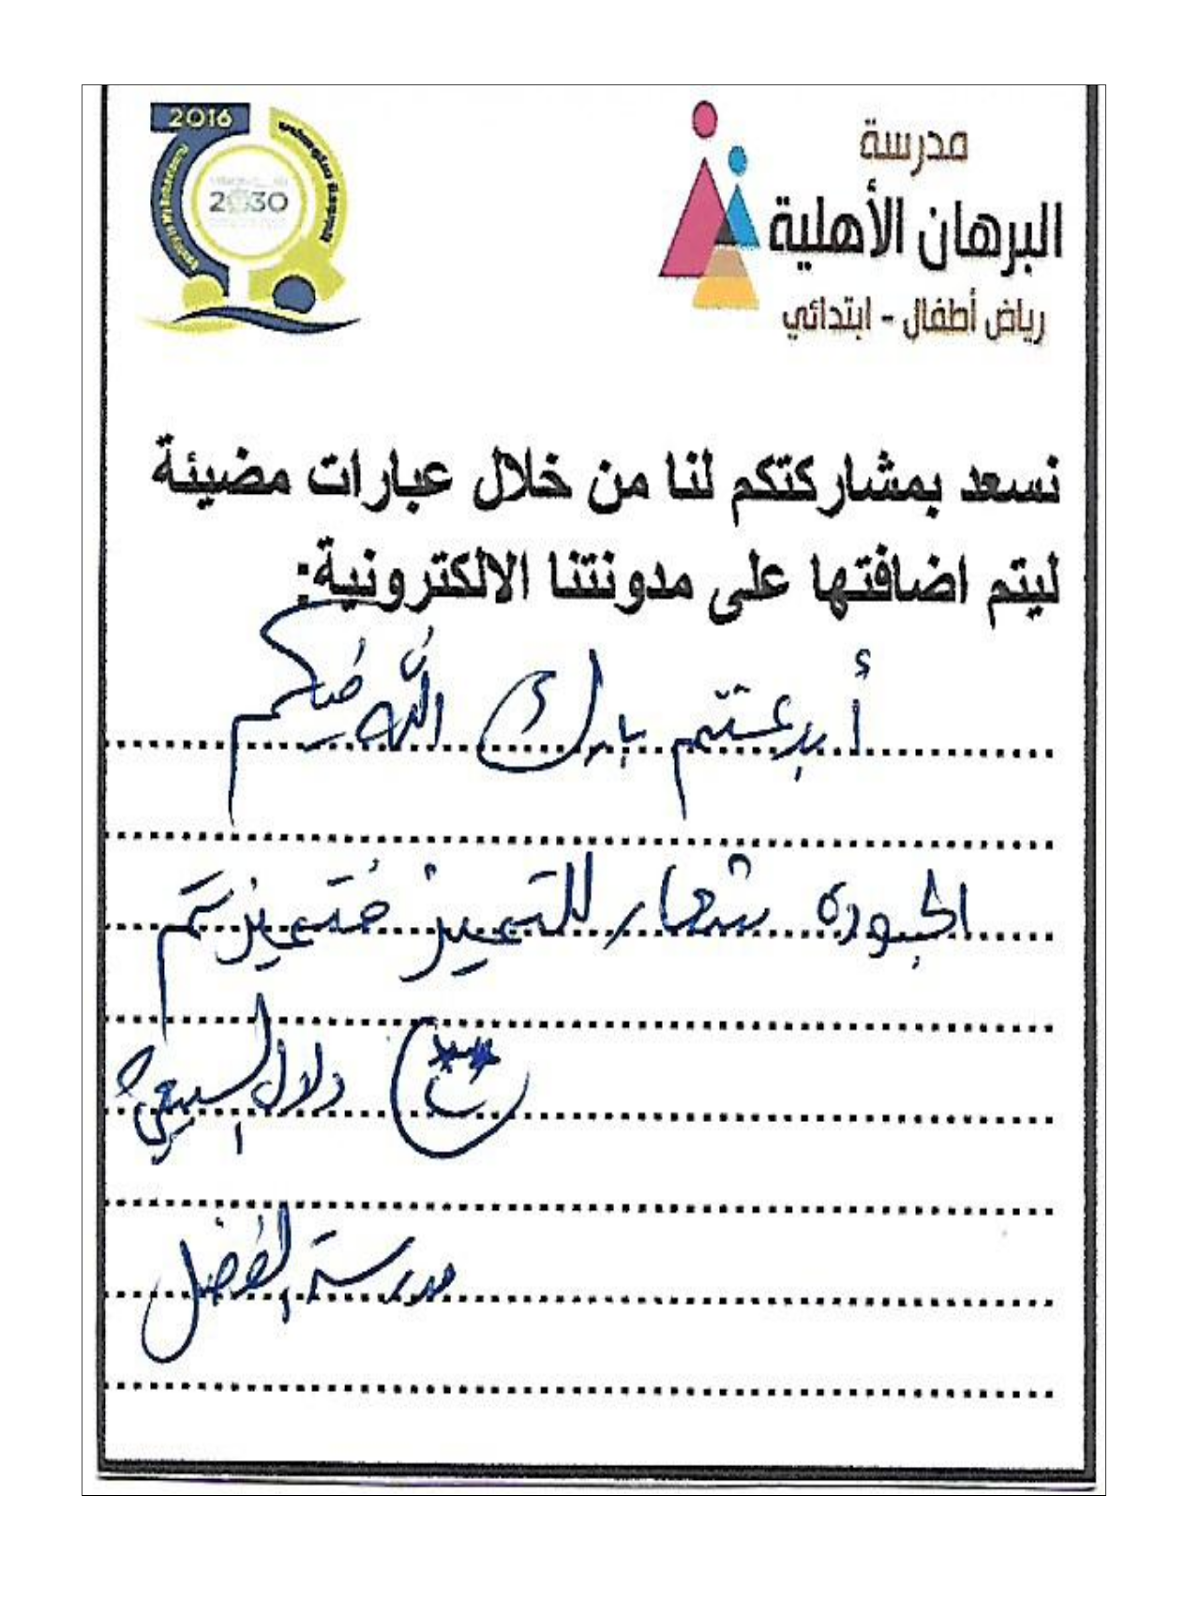 2016
2030
مدرسة
البرهان الأهلية
رياض أطفال - ابتدائي
نسعد بمشاركتكم لنا من خلال عبارات مضيئة
ليتم اضافتها على مدونتنا الالكترونية:
أبدعتم بارك الله فيكم
الجوده شعار للتميز فتميزتم
دلال السبيعي
مدرسة الفضل